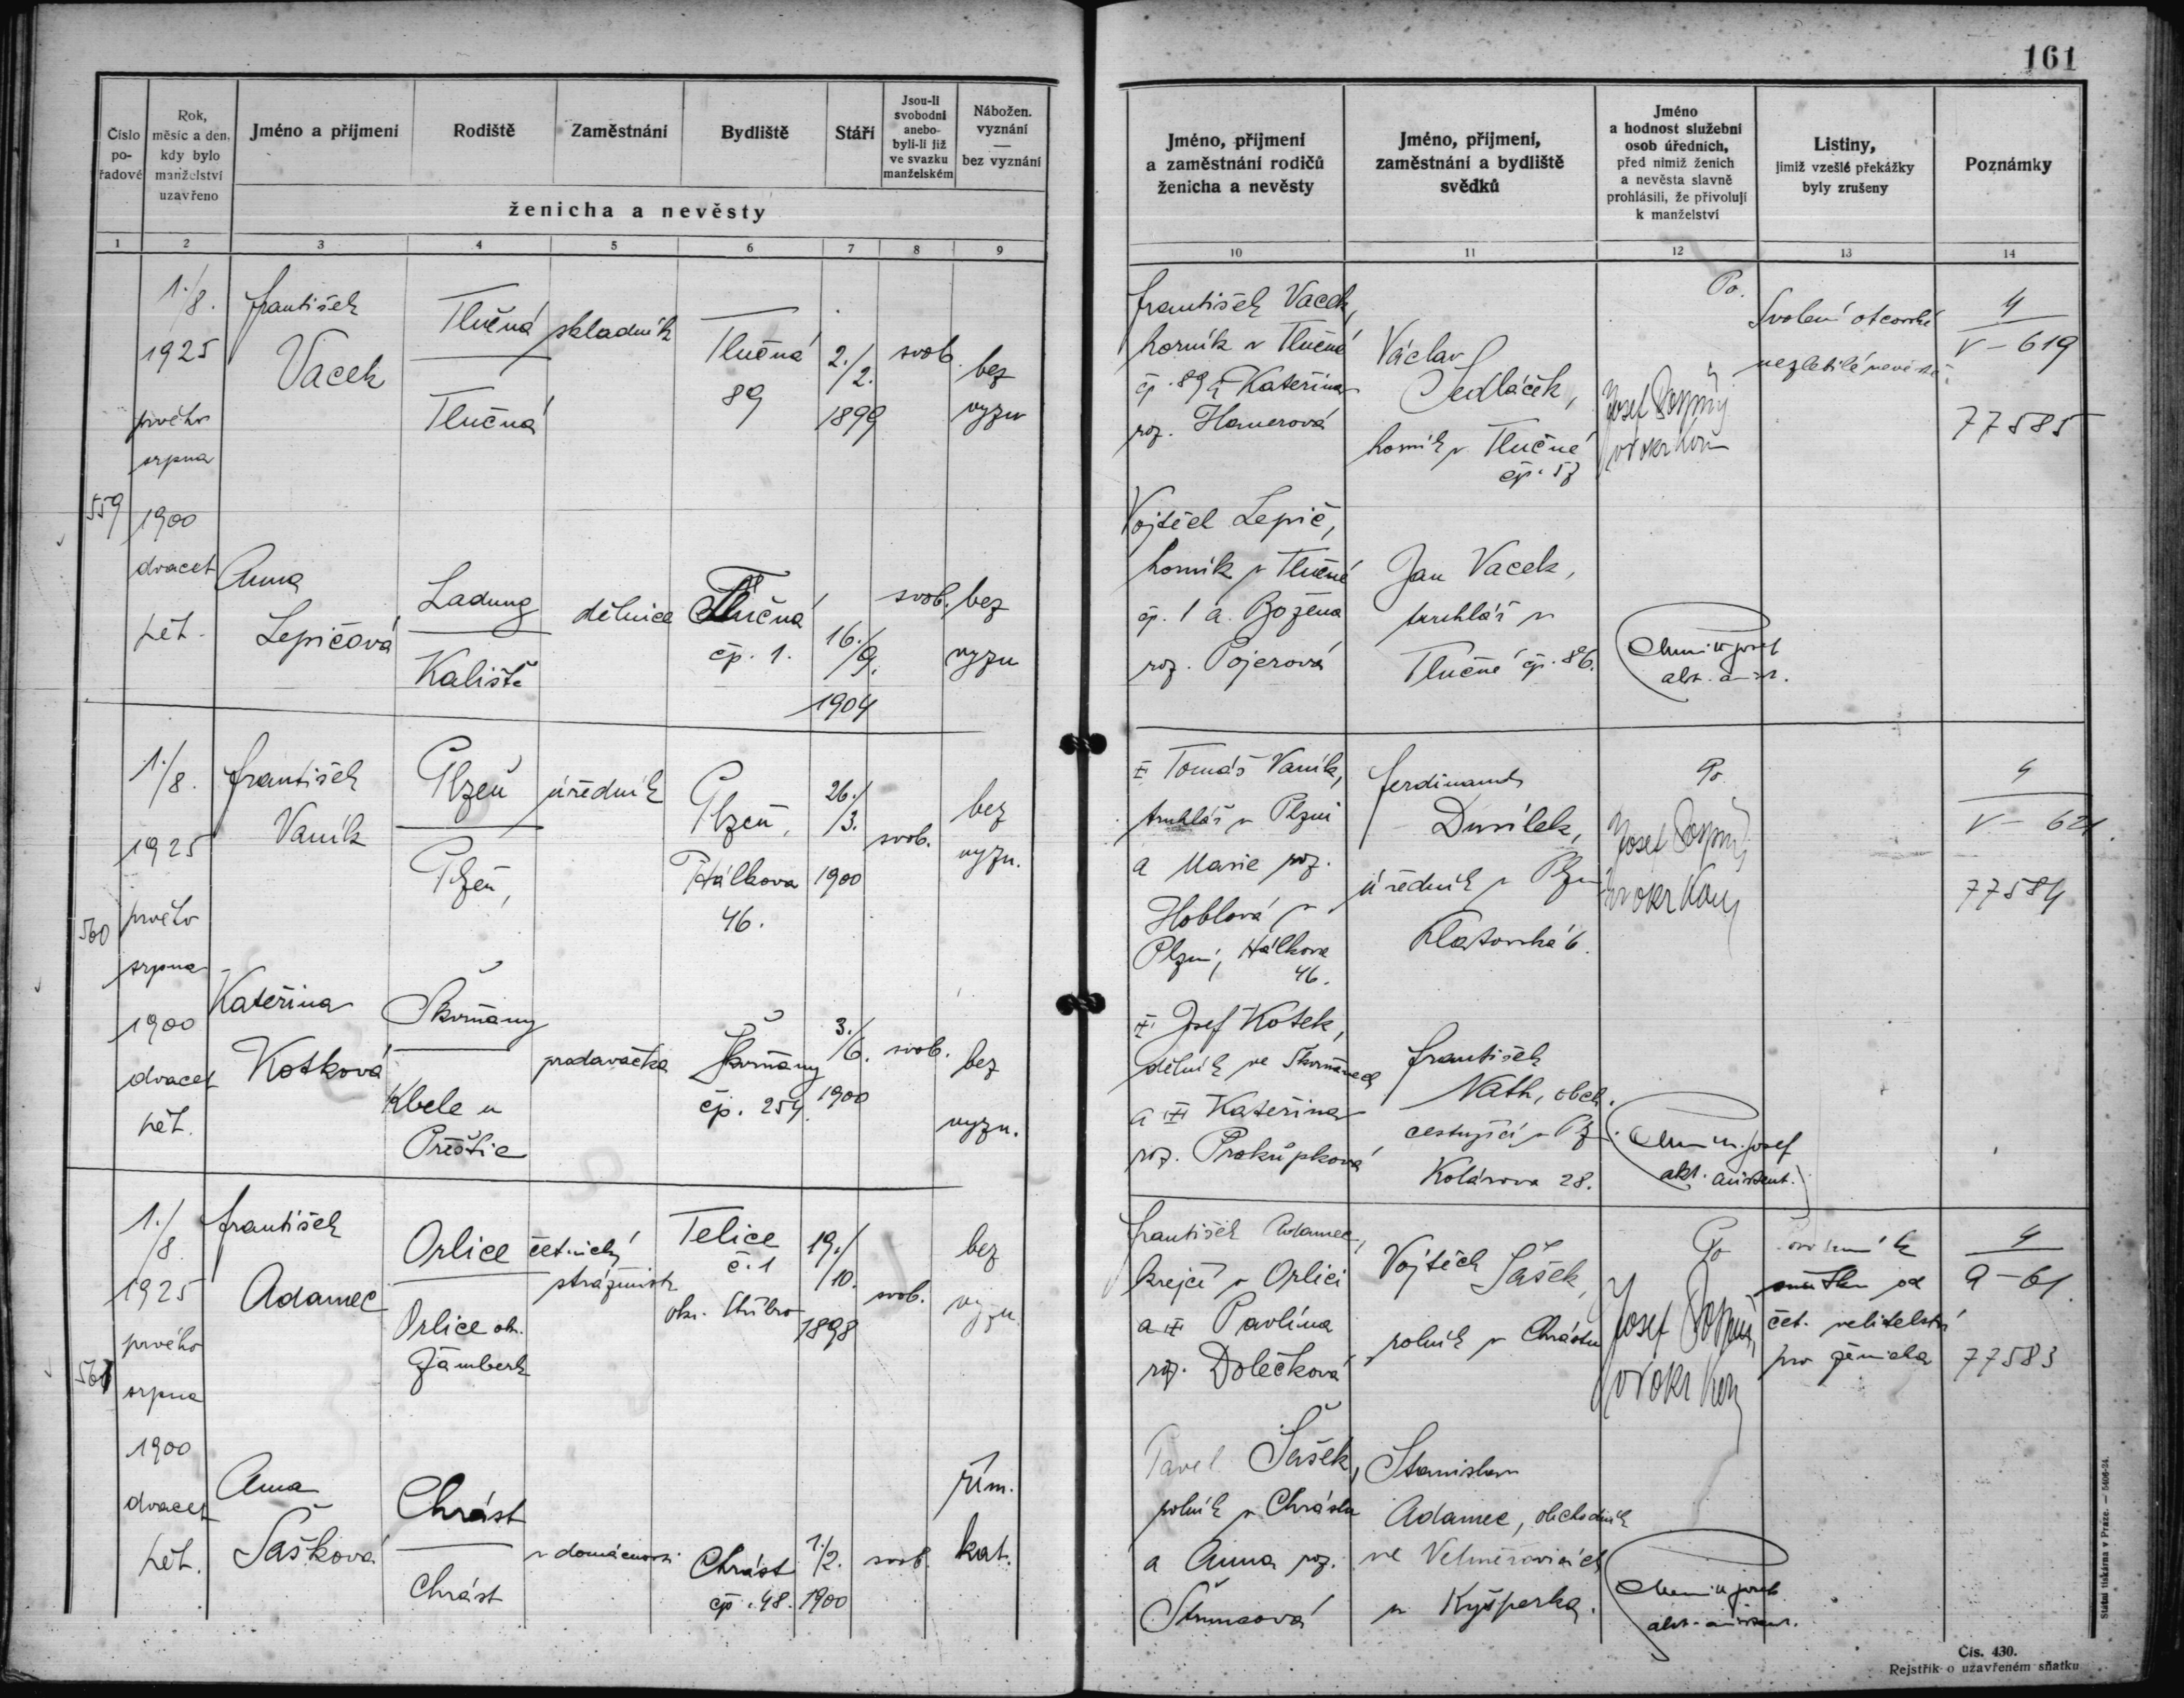 161
Číslo
po-
řadové
Rok,
měsíc a den,
kdy bylo
manželství
uzavřeno
Jméno a příjmení
Rodiště
Zaměstnání
Bydliště
Stáří
Jsou-li
svobodni
anebo-
byli-li již
ve svazku
manželském
Nábožen.
vyznání
—
bez vyznání
ženicha a nevěsty
1
2
3
4
5
6
7
8
9
Jméno, příjmení
a zaměstnání rodičů
ženicha a nevěsty
Jméno, příjmení,
zaměstnání a bydliště
svědků
Jméno
a hodnost služební
osob úředních,
před nimiž ženich
a nevěsta slavně
prohlásili, že přivolují
k manželství
Listiny,
jimiž vzešlé překážky
byly zrušeny
Poznámky
10
11
12
13
14
559
1./8.
1925
prvého
srpna
1900
dvacet
pět.
František
Vacek
Tlučná
Tlučná
skladník
Tlučná
89
2./2.
1899
svob.
bez
vyzn
František Vacek,
horník v Tlučné
čp. 89 a Kateřina
roz. Hamerová
Václav
Sedláček,
horník v Tlučné
čp. 57
Po.
Josef Pospíšil
Svolení otcovské
nezletilé nevěstě.
4
V – 619
77585
Anna
Lepičová
Ladung
Kaliště
dělnice
Tlučná
čp. 1.
16./9.
1904
svob.
bez
vyzn
Vojtěch Lepič,
horník v Tlučné
čp. 1 a Božena
roz. Pojerová
Jan Vacek,
truhlář v
Tlučné čp. 86.
560
1./8.
1925
prvého
srpna
1900
dvacet
pět.
František
Vaník
Plzeň
Plzeň,
úředník
Plzeň,
Hálkova
46.
26./3.
1900
svob.
bez
vyzn.
Tomáš Vaník,
truhlář v Plzni
a Marie roz.
Hoblová v
Plzni, Hálkova
46.
Ferdinand
Dusílek,
úředník v Plzni
Klatovská 6.
Po.
4
V – 621.
77584
Kateřina
Kotková
Škvrňany
Kbele u
Přeštic
prodavačka
Škvrňany
čp. 254.
3./6.
1900
svob.
bez
vyzn.
Josef Kotek,
dělník ve Škvrňanech
a Kateřina
roz. Prokůpková
František
Nath, obch.
cestující v Plz.
Kolárova 28.
561
1./8.
1925
prvého
srpna
1900
dvacet
pět.
František
Adamec
Orlice
Orlice ok.
Žamberk
četnický
strážmistr
Telice
č. 1
okr. Stříbro
19./10.
1898
svob.
bez
vyzn
František Adamec,
krejčí v Orlici
a Pavlína
roz. Dolečková
Vojtěch Sašek,
rolník v Chrástu
Po
čet. velitelství
pro ženicha
4
a – 61.
77583
Anna
Sašková
Chrást
Chrást
v domácnosti
Chrást
čp. 48.
1./2.
1900
svob.
řím.
kat.
Pavel Sašek,
rolník v Chrástu
a Anna roz.
Stanislav
Adamec, obchodník
ve
u Kyšperka.
Státní tiskárna v Praze. — 5406-24.
Čís. 430.
Rejstřík o uzavřeném sňatku